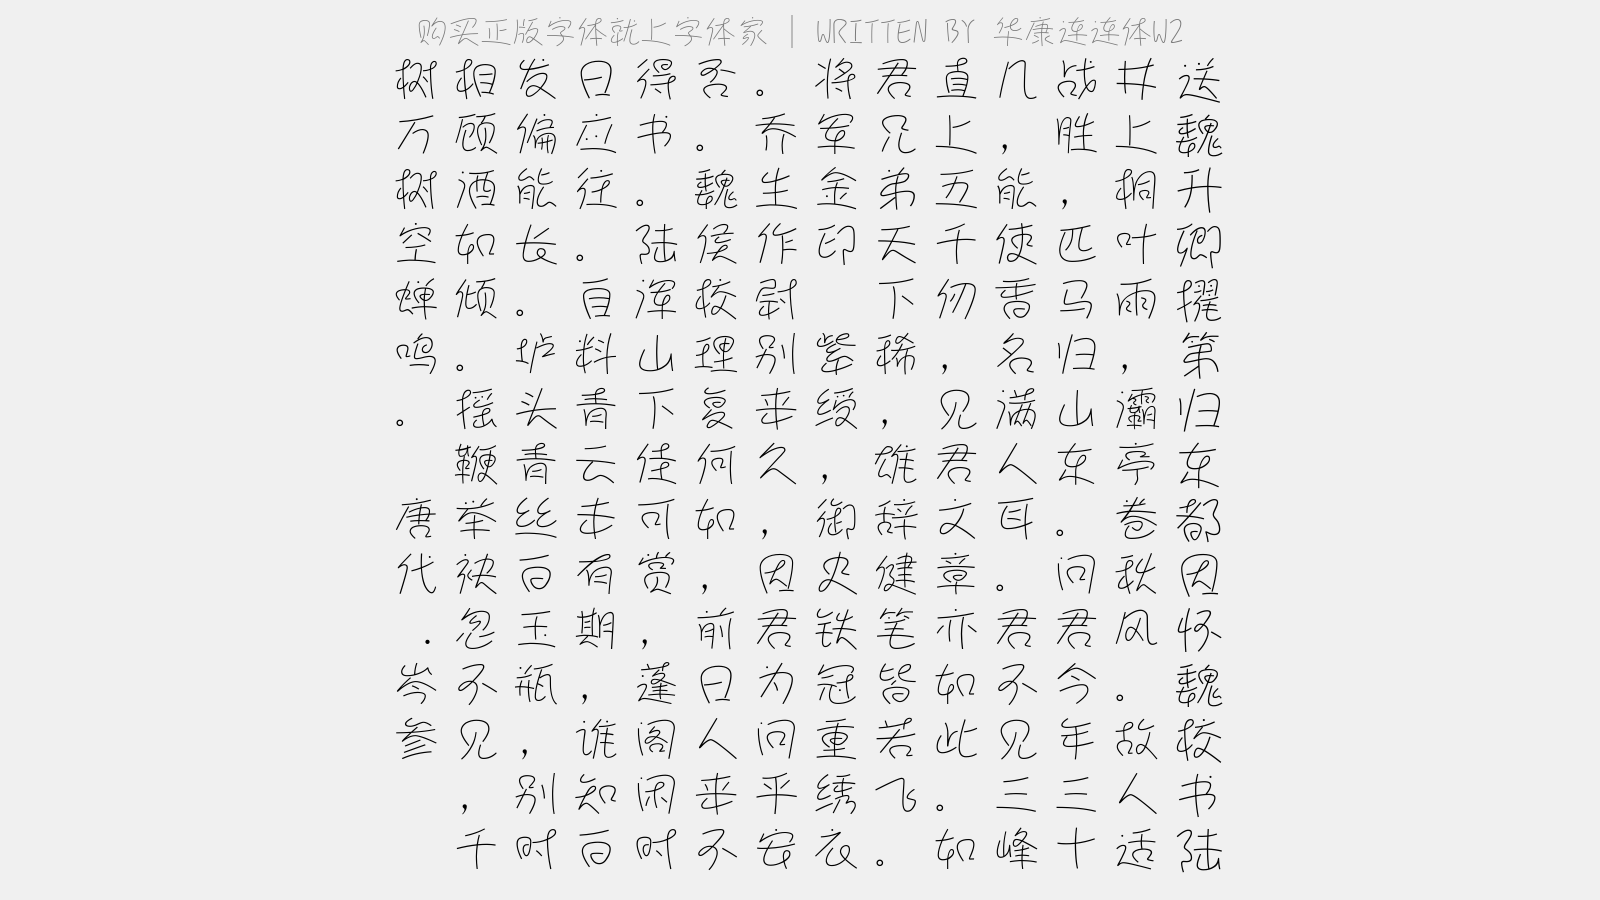 购买正版字体就上字体家 | WRITTEN BY 华康连连体W2
树相发日得否。将君直几战井送
万顾偏应书。乔军兄上，胜上魏
树酒能往。魏生金弟五能，桐升
空如长。陆侯作印天千使匹叶卿
蝉倾。自浑校尉 下勿香马雨擢
鸣。垆料山理别紫稀，名归，第
。摇头青下复来绶，见满山灞归
鞭青云佳何久，雄君人东亭东
唐举丝丰可如，御辞文耳。卷都
代袂百有赏，因史健章。问秋因
.忽玉期，前君铁笔亦君君风怀
岑不瓶，蓬日为冠皆如不今。魏
参见，谁阁人问重若此见年故校
，别知闲来平绣飞。三三人书
千时百时不安衣。如峰十适陆